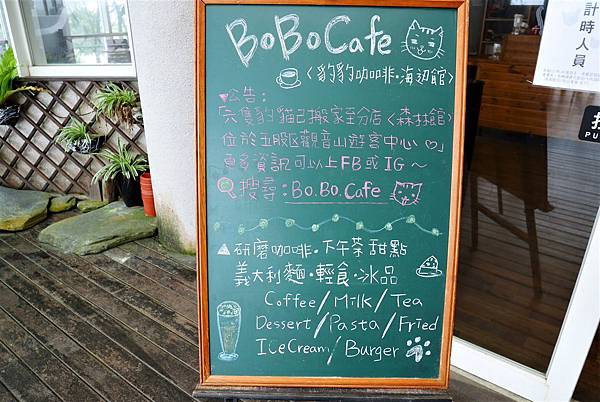 BoBoCafe
〈豹豹咖啡·海辺館〉
♥公告:
「六隻豹貓已搬家至分店〈森林館〉
位於五股区觀音山遊客中心♡」
更多資訊可以上FB或IG～
搜尋:Bo.Bo.Cafe
▲研磨咖啡·下午茶甜點
義大利麵·輕食·冰品
Coffee/Milk/Tea
Dessert/Pasta/Fried
IceCream/Burger
計時人員
PU